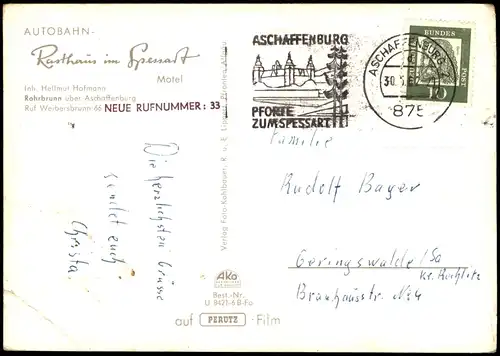 AUTOBAHN-
Rasthaus im Spessart
Motel
Inh. Hellmut Hofmann
Rohrbrunn über Aschaffenburg
Ruf Weibersbrunn 66 NEUE RUFNUMMER: 33
Die herzlichsten Grüsse
sendet euch
Christa.
Verlag Foto-Kohlbauer, K. u. E.
AKO
Best.-Nr.
U 8421-6 B-Fo
auf PERUTZ-Film
ASCHAFFENBURG
PFORTE
ZUM SPESSART
ASCHAFFENBURG
30.
875
DEUTSCHE
BUNDES
POST
10
Familie
Rudolf Bayer
Geringswalde/Sa
Kr. Rochlitz
Brauhausstr. No 4